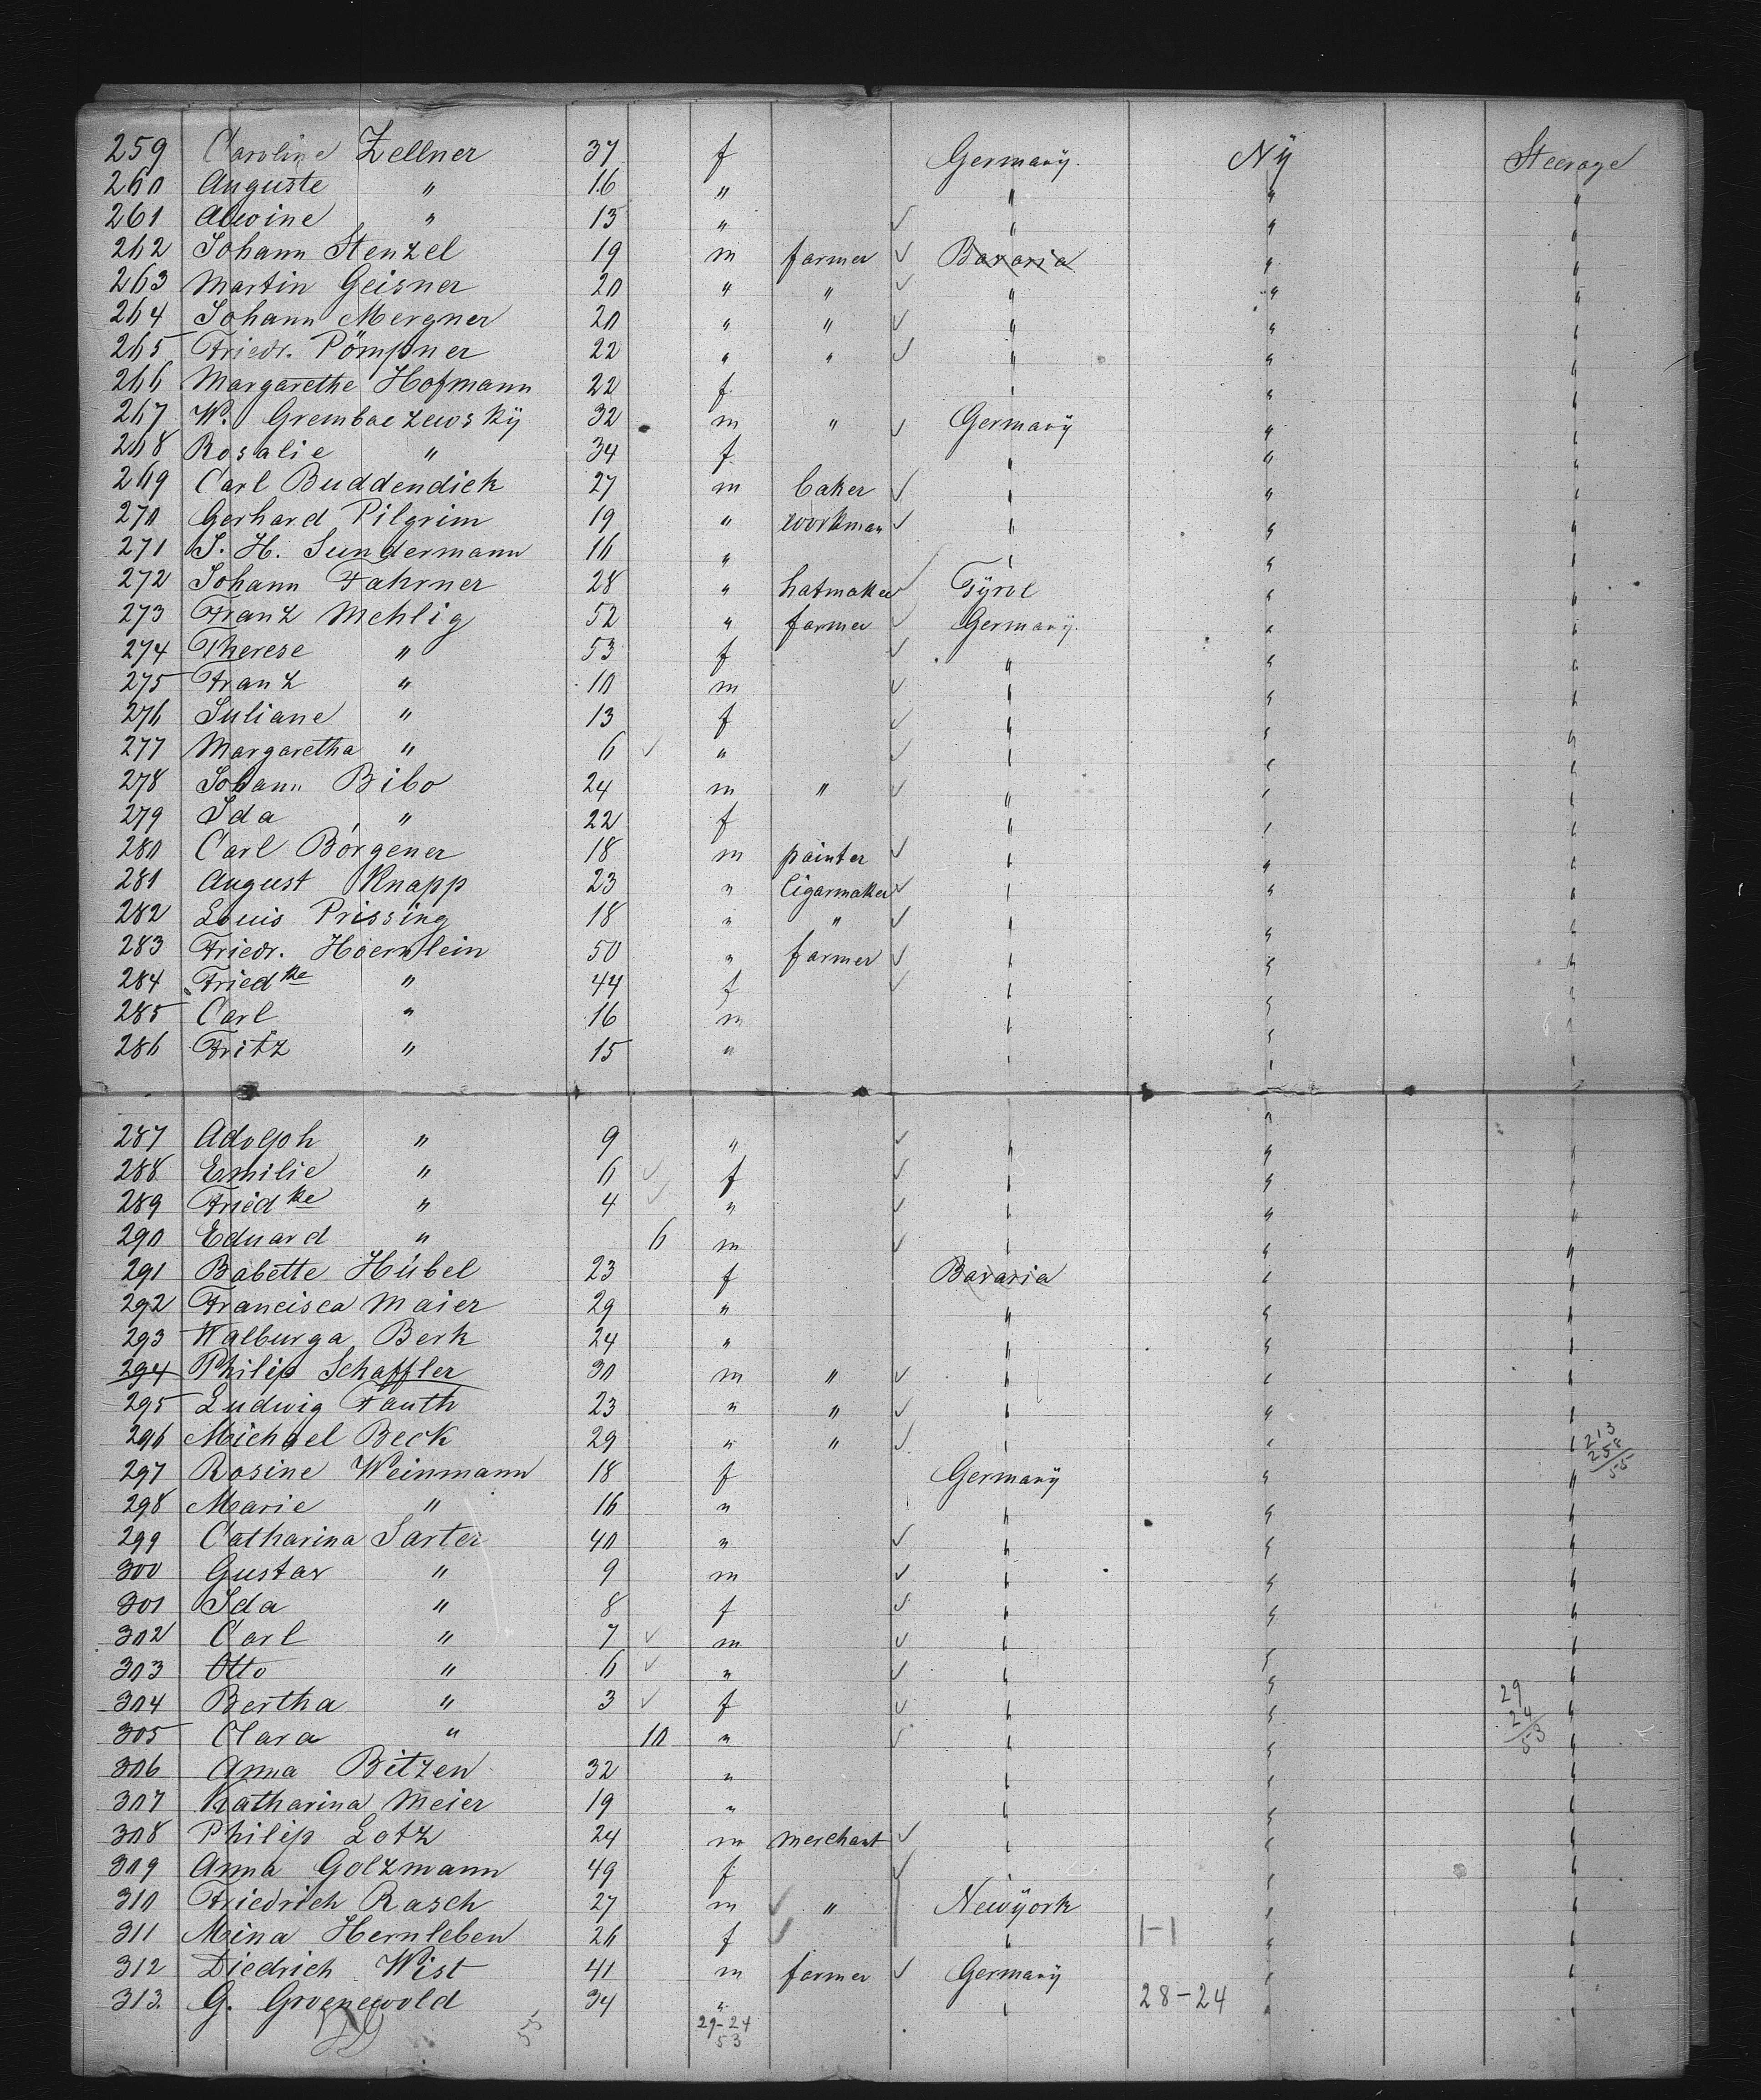 259 Caroline Zellner 37 f Germany. Ny Steerage
260 Auguste " 16 " " " "
261 Alwine " 13 " ✓ " " "
262 Johann Stenzel 19 m farmer ✓ Bavaria " "
263 Martin Geisner 20 " " ✓ " " "
264 Johann Mergner 20 " " ✓ " " "
265 Friedr. Pömpner 22 " " ✓ " " "
266 Margarethe Hofmann 22 f " " "
267 W. Grembaczewsky 32 m " ✓ Germany " "
268 Rosalie " 34 f " " "
269 Carl Buddendick 27 m baker ✓ " " "
270 Gerhard Pilgrim 19 " workman ✓ " " "
271 J. H. Sundermann 16 " " " "
272 Johann Fahrner 28 " hatmaker ✓ Tyrol " "
273 Franz Mehlig 52 " farmer ✓ Germany. " "
274 Therese " 53 f ✓ " " "
275 Franz " 10 m ✓ " " "
276 Juliane " 13 f ✓ " " "
277 Margaretha " 6 ✓ " ✓ " " "
278 Johann Bibo 24 m " ✓ " " "
279 Ida " 22 f " " "
280 Carl Börgener 18 m painter ✓ " " "
281 August Knapp 23 " Cigarmaker ✓ " " "
282 Louis Prissing 18 " " ✓ " " "
283 Friedr. Hoernlein 50 " farmer ✓ " " "
284 Friedke " 44 f ✓ " " "
285 Carl " 16 m " " "
286 Fritz " 15 " " " "
287 Adolph " 9 " ✓ " " "
288 Emilie " 6 ✓ f ✓ " " "
289 Friedke " 4 ✓ " ✓ " " "
290 Eduard " 6 m ✓ " " "
291 Babette Hübel 23 f Bavaria " "
292 Francisca Maier 29 " " " "
293 Walburga Berk 24 " " " "
294 Philip Schaffler 30 m " ✓ " " "
295 Ludwig Fauth 23 " " ✓ " " "
296 Michael Beck 29 " " ✓ " " "
213
258
55
297 Rosine Weinmann 18 f Germany " "
298 Marie " 16 " " " "
299 Catharina Sarter 40 " ✓ " " "
300 Gustav " 9 m ✓ " " "
301 Ida " 8 f ✓ " " "
302 Carl " 7 ✓ m ✓ " " "
303 Otto " 6 ✓ " ✓ " " "
304 Bertha " 3 ✓ f ✓ " " "
29
24
53
305 Clara " 10 " ✓ " " "
306 Anna Bitzen 32 " " " "
307 Katharina Meier 19 " " " "
308 Philip Lotz 24 m merchant ✓ " " "
309 Anna Golzmann 49 f ✓ " " "
310 Friedrich Rasch 27 m ✓ " Newyork " "
311 Mina Hernleben 26 f ✓ " 1-1 " "
312 Diedrich Wist 41 m farmer ✓ Germany " "
313. G. Groenewold 34 " " 28-24 " "
29-24
53
55